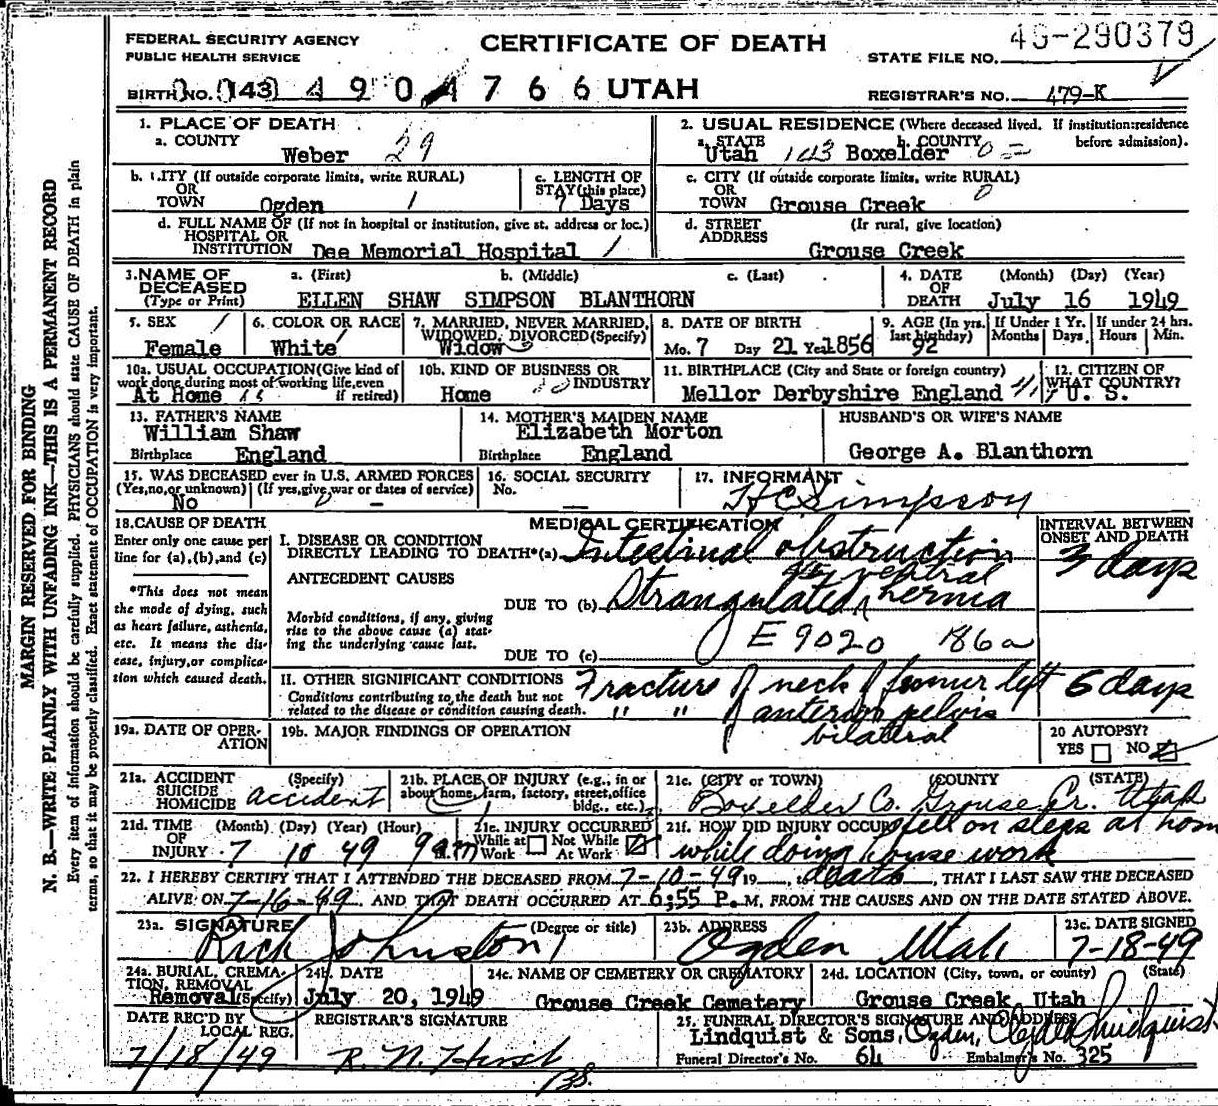 MARGIN RESERVED FOR BINDING
N. B.—WRITE PLAINLY WITH UNFADING INK—THIS IS A PERMANENT RECORD
Every item of information should be carefully supplied. PHYSICIANS should state CAUSE OF DEATH in plain
terms, so that it may be properly classified. Exact statement of OCCUPATION is very important.
FEDERAL SECURITY AGENCY
PUBLIC HEALTH SERVICE
CERTIFICATE OF DEATH
49-290379
STATE FILE NO.
BIRTH NO. (143) 4 9 0 4 7 6 6 UTAH
REGISTRAR'S NO. 479-K
1. PLACE OF DEATH
a. COUNTY
Weber 29
2. USUAL RESIDENCE (Where deceased lived. If institution:residence
before admission).
a. STATE b. COUNTY
Utah 143 Boxelder 0
b. CITY (If outside corporate limits, write RURAL)
OR
TOWN Ogden 1
c. LENGTH OF
STAY(this place)
7 Days
c. CITY (If outside corporate limits, write RURAL)
OR
TOWN Grouse Creek 0
d. FULL NAME OF (If not in hospital or institution, give st. address or loc.)
HOSPITAL OR
INSTITUTION Dee Memorial Hospital 1
d. STREET (If rural, give location)
ADDRESS
Grouse Creek
3.NAME OF a. (First) b. (Middle) c. (Last)
DECEASED
(Type or Print) ELLEN SHAW SIMPSON BLANTHORN
4. DATE (Month) (Day) (Year)
OF
DEATH July 16 1949
5. SEX
Female
6. COLOR OR RACE
White
7. MARRIED, NEVER MARRIED,
WIDOWED, DIVORCED(Specify)
Widow
8. DATE OF BIRTH
Mo. 7 Day 21 Yr. 1856
9. AGE (In yrs.
last birthday)
92
If Under 1 Yr.
Months Days
If under 24 hrs.
Hours Min.
10a. USUAL OCCUPATION(Give kind of
work done during most of working life,even
if retired)
At Home
10b. KIND OF BUSINESS OR
INDUSTRY
Home
11. BIRTHPLACE (City and State or foreign country)
Mellor Derbyshire England
12. CITIZEN OF
WHAT COUNTRY?
U. S.
13. FATHER'S NAME
William Shaw
Birthplace England
14. MOTHER'S MAIDEN NAME
Elizabeth Morton
Birthplace England
HUSBAND'S OR WIFE'S NAME
George A. Blanthorn
15. WAS DECEASED ever in U.S. ARMED FORCES
(Yes,no,or unknown) (If yes,give war or dates of service)
No -
16. SOCIAL SECURITY
No. —
17. INFORMANT
H C Simpson
18.CAUSE OF DEATH
Enter only one cause per
line for (a),(b),and (c)
*This does not mean
the mode of dying, such
as heart failure, asthenia,
etc. It means the dis-
ease, injury,or complica-
tion which caused death.
MEDICAL CERTIFICATION
I. DISEASE OR CONDITION
DIRECTLY LEADING TO DEATH*(a) Intestinal obstruction
ANTECEDENT CAUSES
DUE TO (b) Strangulated ventral hernia
Morbid conditions, if any, giving
rise to the above cause (a) stat-
ing the underlying cause last.
E 9020 186a
DUE TO (c)
INTERVAL BETWEEN
ONSET AND DEATH
3 days
II. OTHER SIGNIFICANT CONDITIONS
Conditions contributing to the death but not
related to the disease or condition causing death.
Fracture of neck of femur left 6 days
" " of anterior pelvis
bilateral
19a. DATE OF OPER-
ATION
19b. MAJOR FINDINGS OF OPERATION
20 AUTOPSY?
YES NO
21a. ACCIDENT (Specify)
SUICIDE
HOMICIDE accident
21b. PLACE OF INJURY (e.g., in or
about home, farm, factory, street,office
bldg., etc.)
21c. (CITY or TOWN) (COUNTY (STATE)
Boxelder Co. Grouse Cr. Utah
21d. TIME (Month) (Day) (Year) (Hour)
OF
INJURY 7 10 49 9 a.m.
21e. INJURY OCCURRED
While at Not While
Work At Work
21f. HOW DID INJURY OCCUR? fell on steps at home
while doing house work
22. I HEREBY CERTIFY THAT I ATTENDED THE DECEASED FROM 7-10-49 19 , to death , THAT I LAST SAW THE DECEASED
ALIVE ON 7-16-49, AND THAT DEATH OCCURRED AT 6:55 P.M, FROM THE CAUSES AND ON THE DATE STATED ABOVE.
23a. SIGNATURE (Degree or title)
Rich Johnston
23b. ADDRESS
Ogden Utah
23c. DATE SIGNED
7-18-49
24a. BURIAL, CREMA-
TION, REMOVAL
Removal (Specify)
24b. DATE
July 20, 1949
24c. NAME OF CEMETERY OR CREMATORY
Grouse Creek Cemetery
24d. LOCATION (City, town, or county) (State)
Grouse Creek, Utah
DATE REC'D BY
LOCAL REG.
7/18/49
REGISTRAR'S SIGNATURE
25. FUNERAL DIRECTOR'S SIGNATURE AND ADDRESS
Lindquist & Sons, Ogden, Lindquist
Funeral Director's No. 64 Embalmer's No. 325